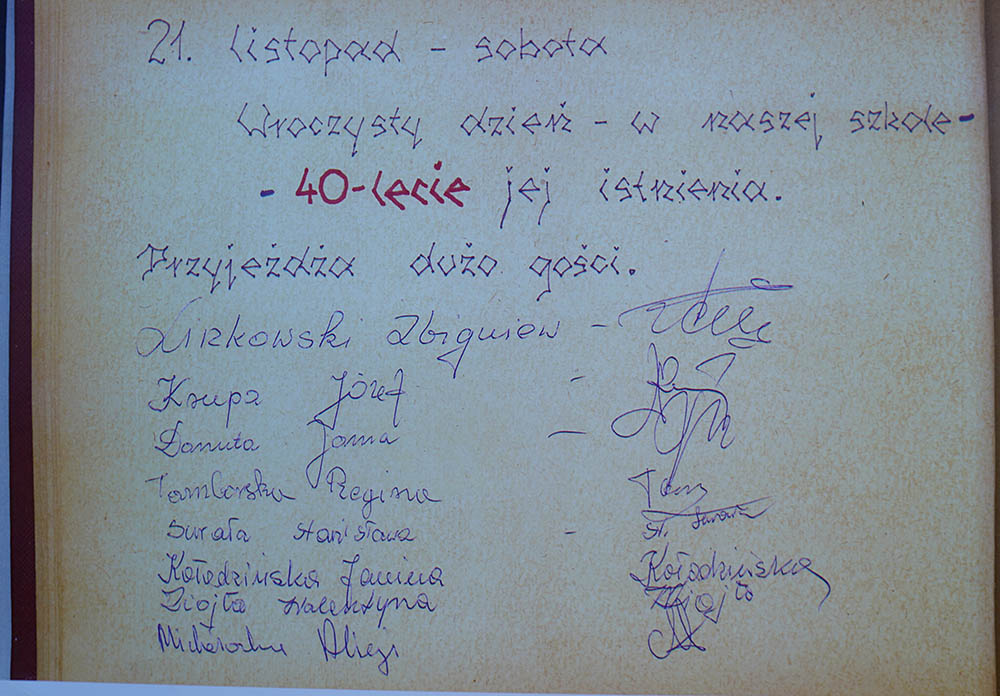 21. listopad - sobota
Uroczysty dzień - w naszej szkole -
- 40-lecie jej istnienia.
Przyjeżdża dużo gości.
Zbigniew -
Krupa Józef -
Danuta -
Tamborska Regina
Surała Stanisława - St. Surała
Kołodzińska Janina Kołodzińska
Ziojła Walentyna
Alicja